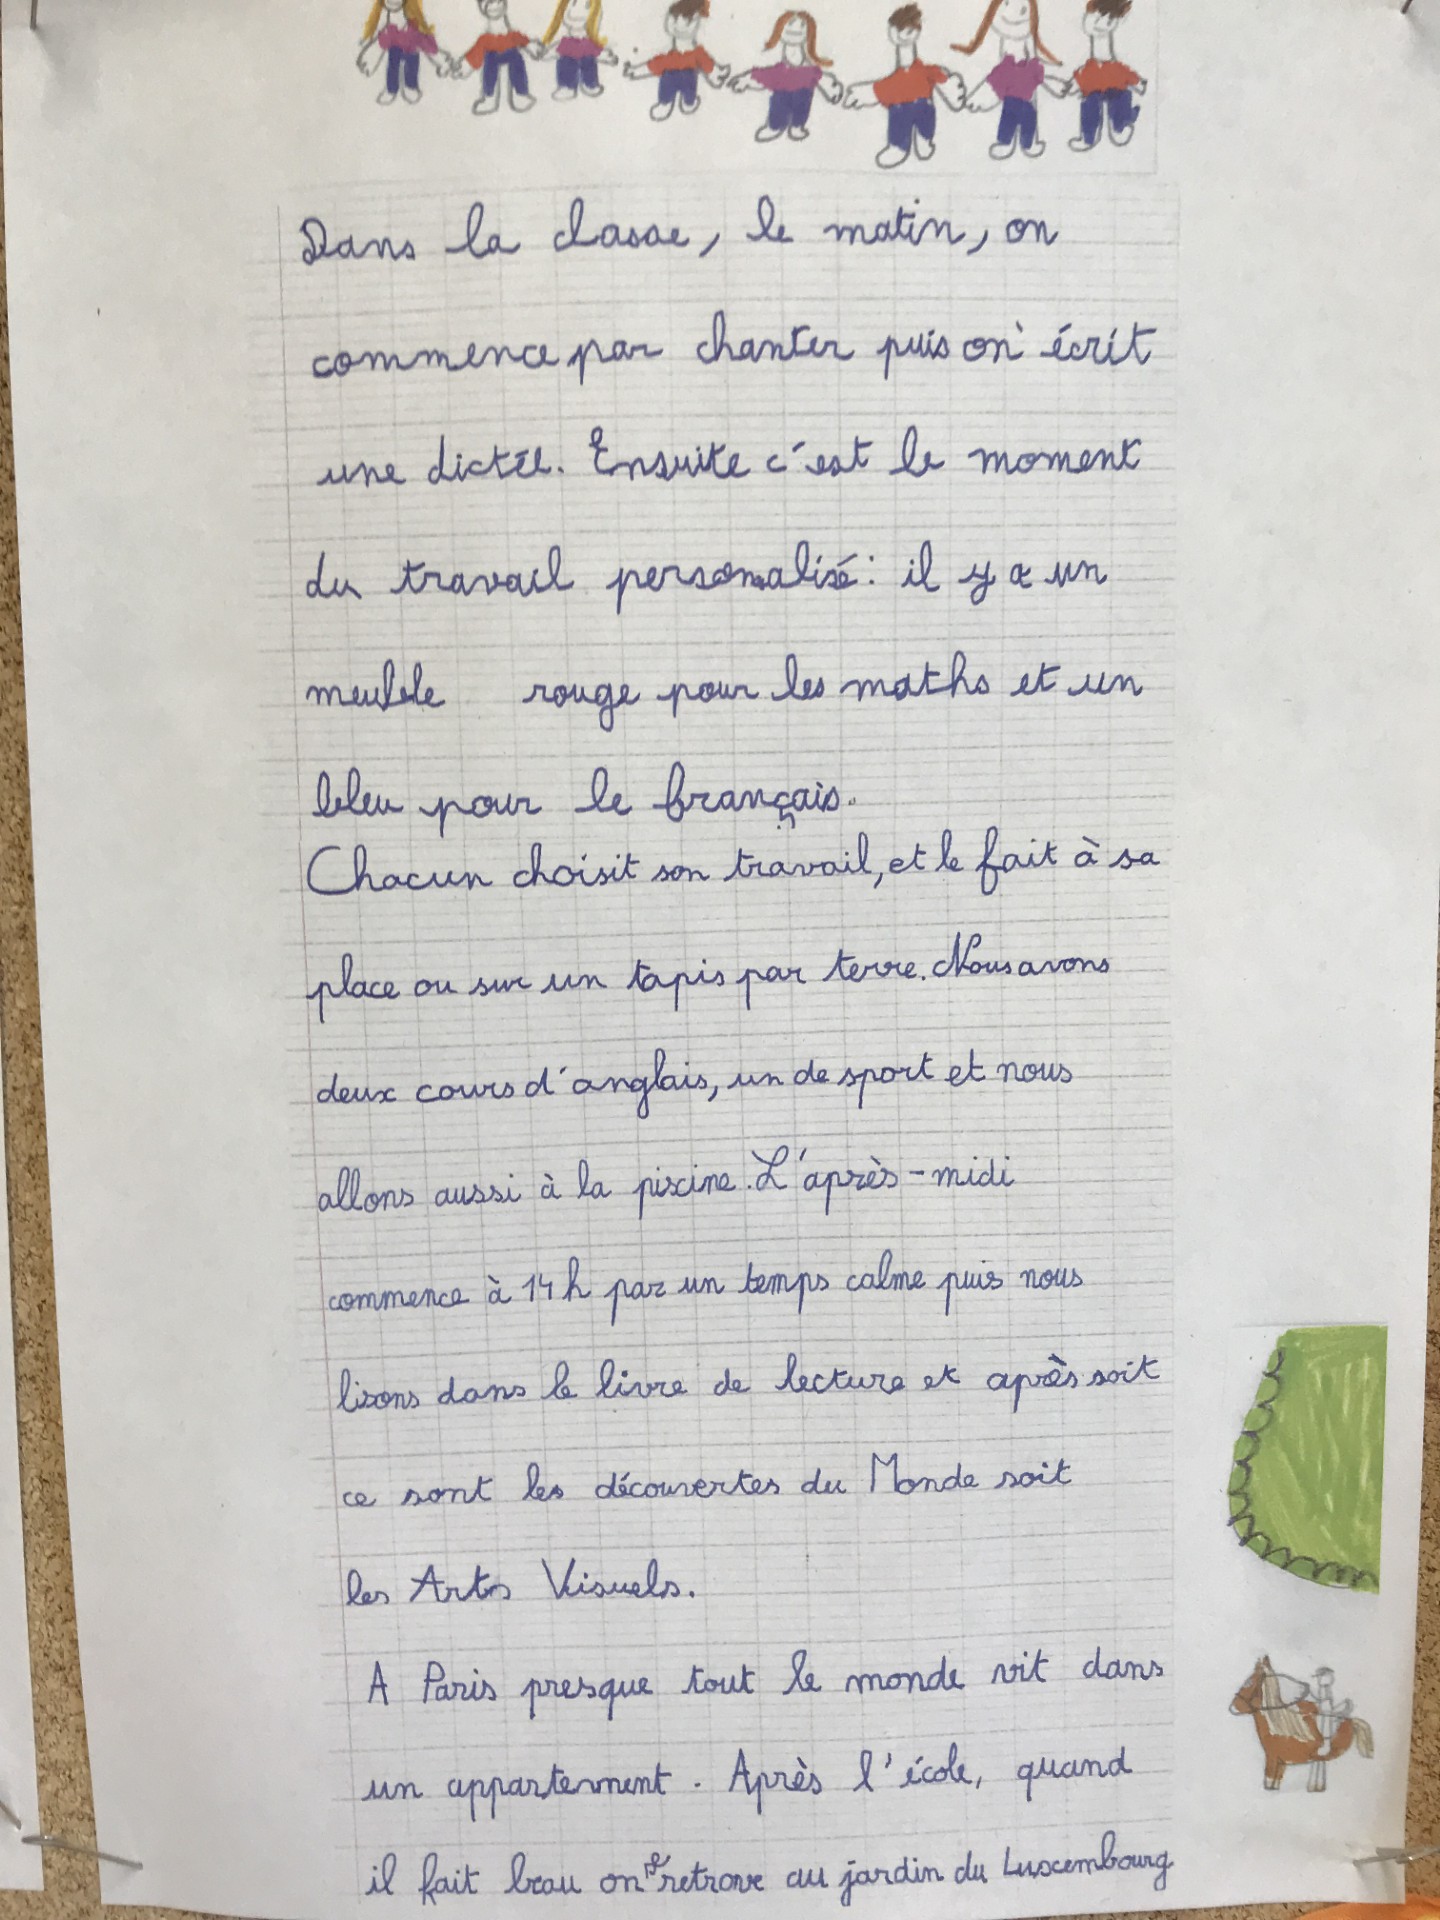 Dans la classe, le matin, on
commence par chanter puis on écrit
une dictée. Ensuite c'est le moment
du travail personnalisé: il y a un
meuble rouge pour les maths et un
bleu pour le français.
Chacun choisit son travail, et le fait à sa
place ou sur un tapis par terre. Nous avons
deux cours d'anglais, un de sport et nous
allons aussi à la piscine. L'après-midi
commence à 14h par un temps calme puis nous
lisons dans le livre de lecture et après soit
ce sont les découvertes du Monde soit
les Arts Visuels.
A Paris presque tout le monde vit dans
un appartement. Après l'école, quand
il fait beau on se retrove au jardin du Luxembourg